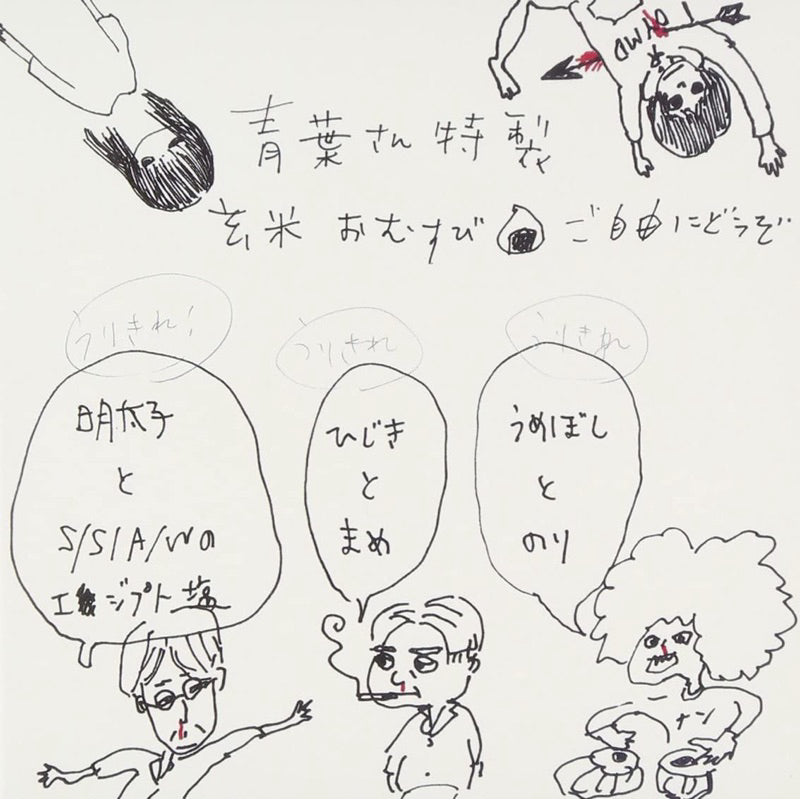 青葉さん特製
玄米おむすび🍙ご自由にどうぞ
うりきれ!
うりきれ
うりきれ
明太子
と
S/S/A/Wの
エジプト塩
ひじき
と
まめ
うめぼし
と
のり
ナン